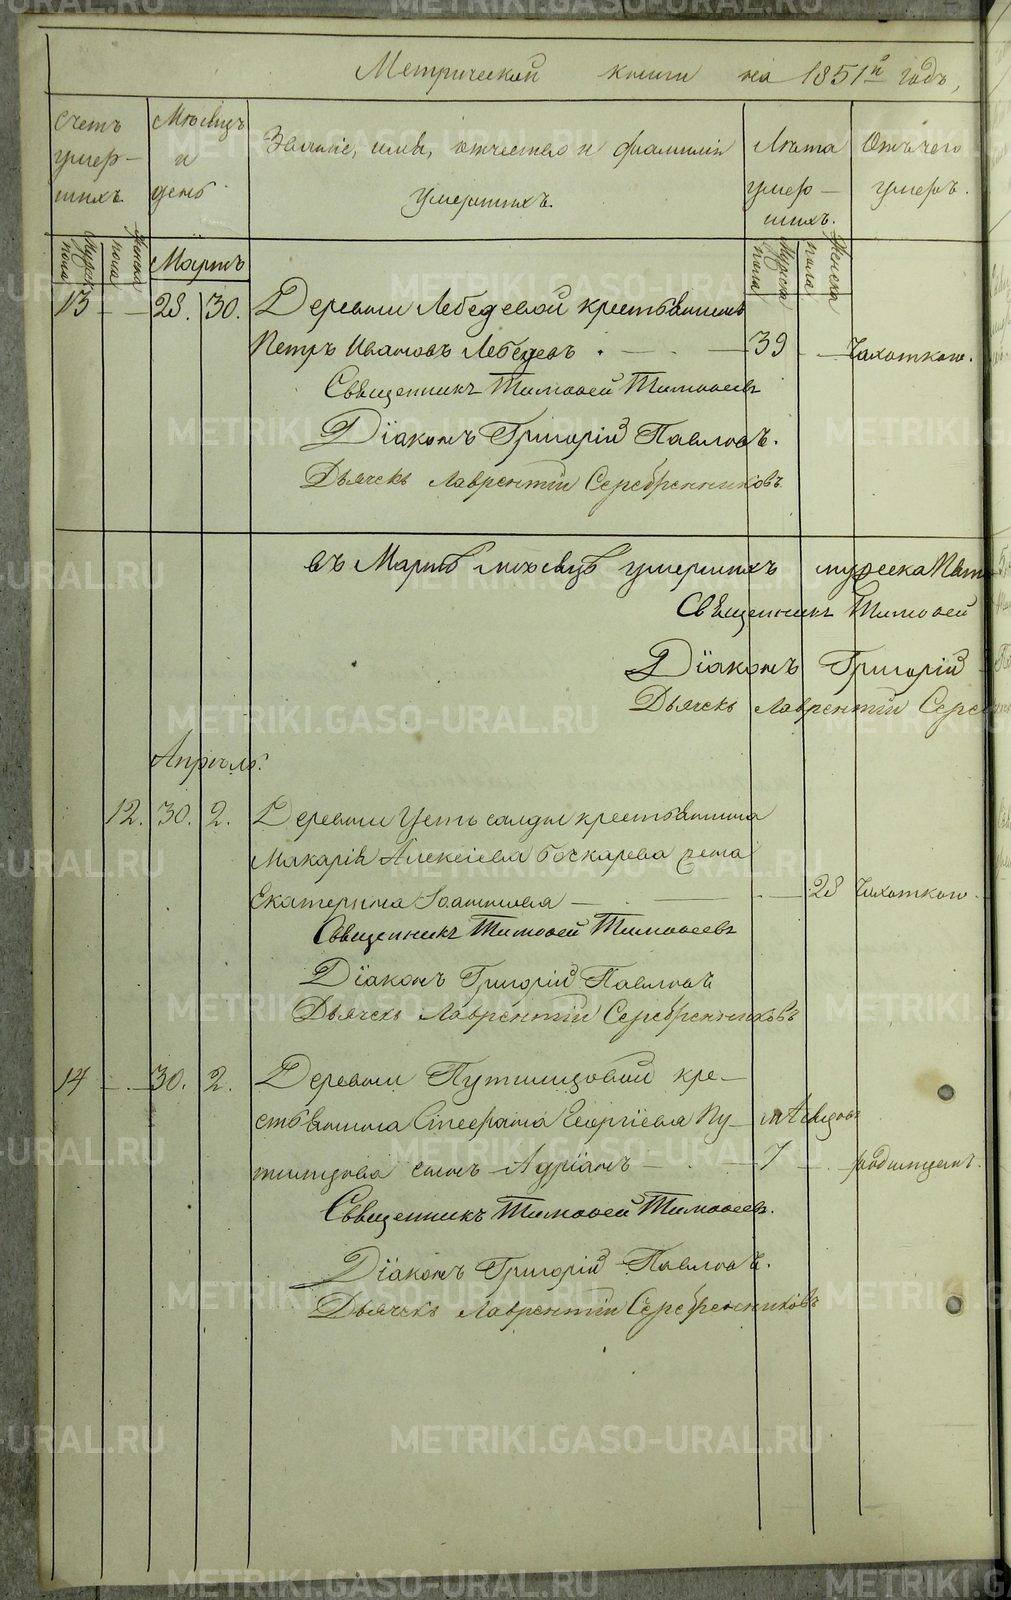 Метрической книги на 1851й годъ,
Счетъ умер-шихъ.
Мѣсяцъ и день
Званіе, имя, отчество и фамилія умершихъ.
Лѣта умер-шихъ.
Отъ чего умеръ.
Мужска пола
Женска пола
Мартъ
Мужска пола
Женска пола
13 28. 30. Деревни Лебедевой крестьянинъ
Петръ Ивановъ Лебедевъ 39 Чахоткою.
Священникъ Тимоѳей Тимоѳеевъ
Діаконъ Григорій Павловъ.
Дьячекъ Лаврентій Серебренниковъ
въ Мартѣ мѣсяцѣ умершихъ мужеска
Священникъ Тимоѳей
Діаконъ Григорій
Дьячекъ Лаврентій
Апрѣль.
12. 30. 2. Деревни Усть салды крестьянина
Макарія Алексіева Боскарева жена
Екатерина Іоаннова 28 Чахоткою
Священникъ Тимоѳей Тимоѳеевъ
Діаконъ Григорій Павловъ
Дьячекъ Лаврентій Серебренниковъ
14 30. 2. Деревни Путимцовой кре-
стьянина Стефана Георгіева Пу-
тимцова сынъ Адріанъ 7 родимцемъ.
Священникъ Тимоѳей Тимоѳеевъ.
Діаконъ Григорій Павловъ.
Дьячекъ Лаврентій Серебренниковъ
METRIKI.GASO-URAL.RU